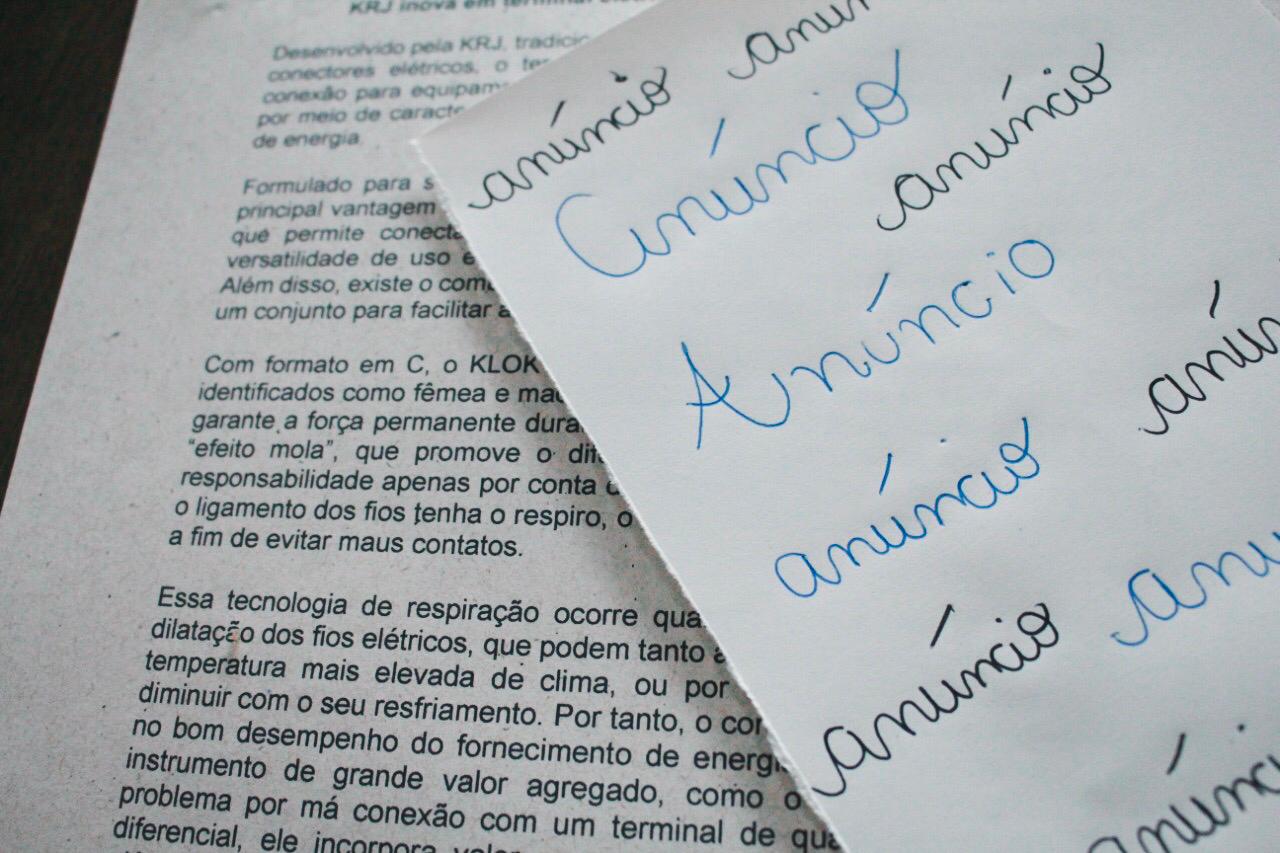 KRJ inova em terminal
Desenvolvido pela KRJ,
conectores elétricos, o
conexão para
por meio de
de energia.
Formulado para
principal vantagem
que permite
versatilidade de uso
Além disso, existe o
um conjunto para facilitar
Com formato em C, o KLOK
identificados como fêmea e
garante a força permanente
“efeito mola”, que promove o
responsabilidade apenas por conta
o ligamento dos fios tenha o respiro, o
a fim de evitar maus contatos.
Essa tecnologia de respiração ocorre
dilatação dos fios elétricos, que podem tanto
temperatura mais elevada de clima, ou por
diminuir com o seu resfriamento. Por tanto, o
no bom desempenho do fornecimento de
instrumento de grande valor agregado, como o
problema por má conexão com um terminal de
diferencial, ele incorpora
anúncio
Anúncio
anúncio
Anúncio
anúncio
anúncio